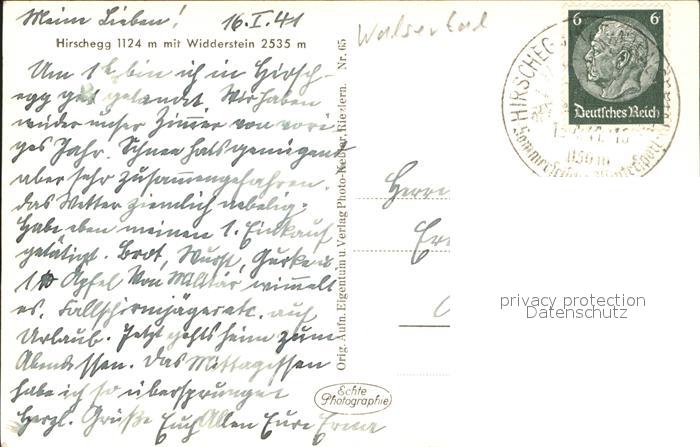 Meine Lieben! 16.I.41
Hirschegg 1124 m mit Widderstein 2535 m
Um 1h bin ich in Hirsch-
egg gut gelandet. Wir haben
wieder unser Zimmer von vori-
ges Jahr. Schnee hats genügend
aber sehr zusammengefahren.
das Wetter ziemlich nebelig.
Habe eben meinen 1. Einkauf
getätigt. Brot, Wurst, Gurke u.
Äpfel Von Militär wimmelt
es. Fallschirmjäger etc. auf
Urlaub. Jetzt gehts heim zum
Abendessen. Das Mittagessen
habe ich so übersprungen
Herzl. Grüße Euch Allen Eure Erna
Orig. Aufn. Eigentum u. Verlag Photo-Keßler, Riezlern. Nr. 65
Echte
Photographie
Walsertal
6 6
Deutsches Reich
HIRSCHEGG
1124 m
Herrn
privacy protection
Datenschutz